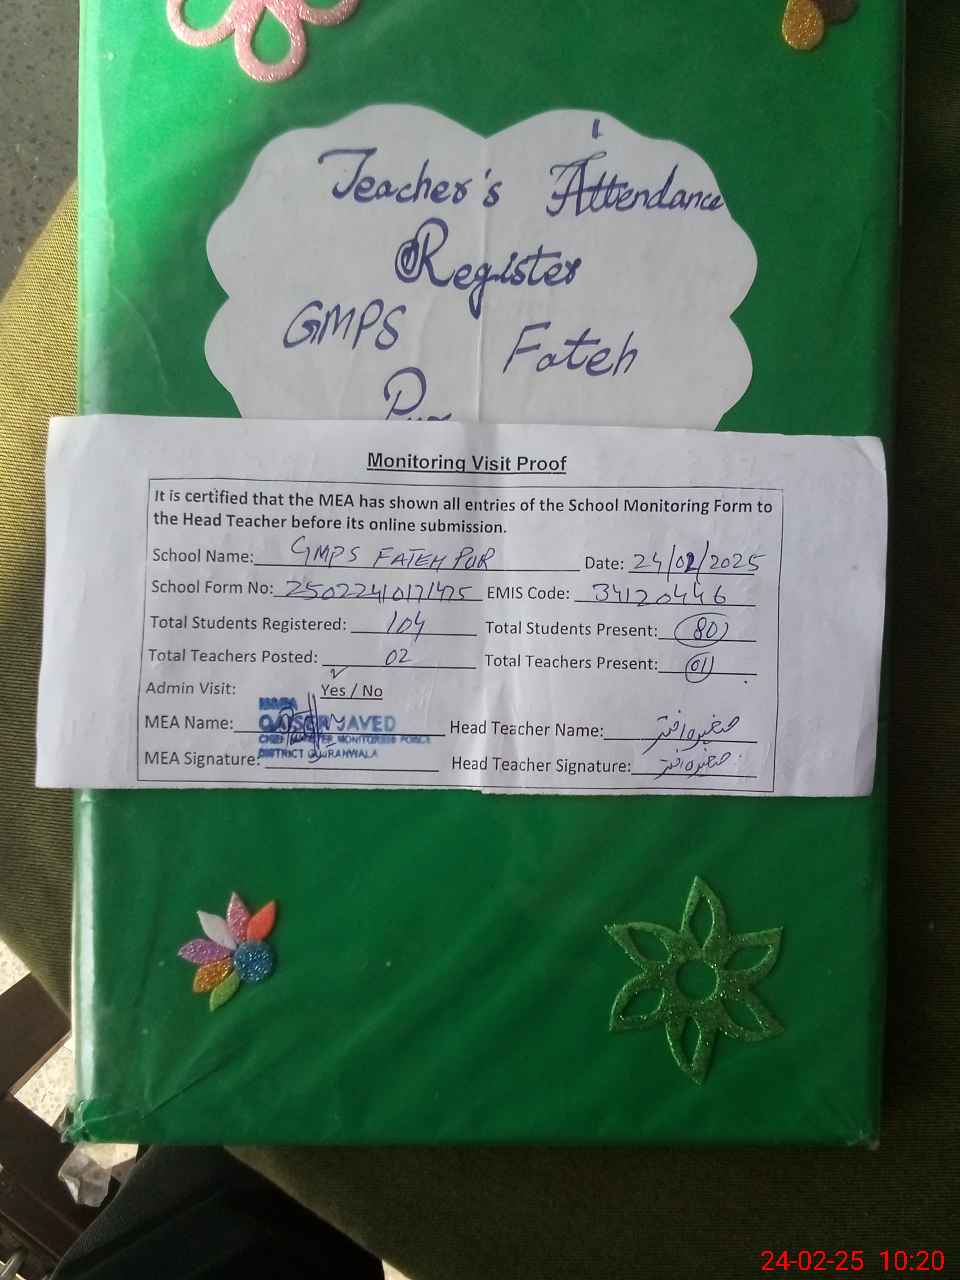 Teacher's Attendance
Register
GMPS Fateh
Pur
Monitoring Visit Proof
It is certified that the MEA has shown all entries of the School Monitoring Form to
the Head Teacher before its online submission.
School Name: GMPS FATEH PUR Date: 24/02/2025
School Form No: EMIS Code: 34120446
Total Students Registered: 104 Total Students Present: 80
Total Teachers Posted: 02 Total Teachers Present: 01
Admin Visit: Yes / No
MEA Name: JAVED Head Teacher Name:
DISTRICT GUJRANWALA
MEA Signature: Head Teacher Signature:
24-02-25 10:20